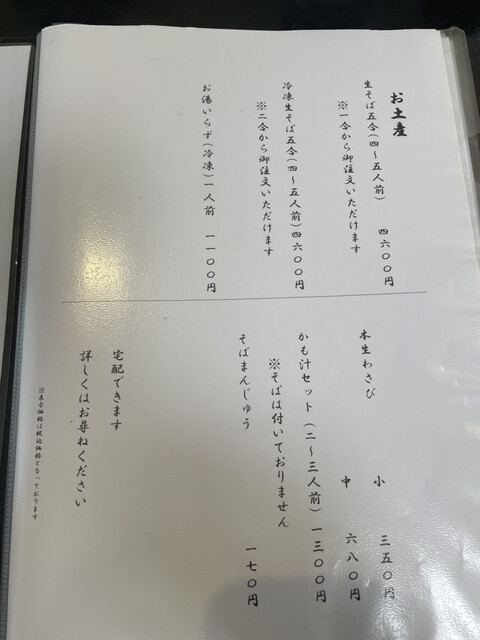 お土産
生そば五合（四～五人前） 四六〇〇円
※一合から御注文いただけます
冷凍生そば五合（四～五人前）四六〇〇円
※二合から御注文いただけます
お湯いらず（冷凍）一人前 一一〇〇円
本生わさび
小 三五〇円
中 六八〇円
かも汁セット（二～三人前）一三〇〇円
※そばは付いておりません
そばまんじゅう 一七〇円
宅配できます
詳しくはお尋ねください
※表示価格は税込価格となっております